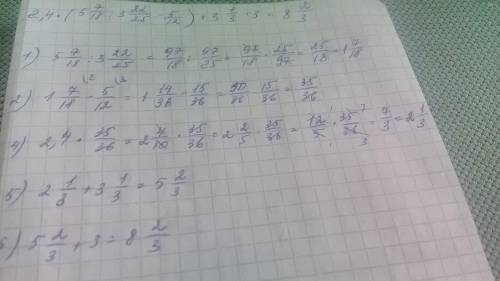 2,4 · (5 7/18 : 3 22/25 - 5/12) + 3 1/3 + 3 = 8 2/3
1) 5 7/18 : 3 22/25 = 97/18 : 97/25 = 97/18 · 25/97 = 25/18 = 1 7/18
2) 1 7/18 - 5/12 = 1 14/36 - 15/36 = 50/36 - 15/36 = 35/36
4) 2,4 · 35/36 = 2 4/10 · 35/36 = 2 2/5 · 35/36 = 12/5 · 35/36 = 7/3 = 2 1/3
5) 2 1/3 + 3 1/3 = 5 2/3
6) 5 2/3 + 3 = 8 2/3